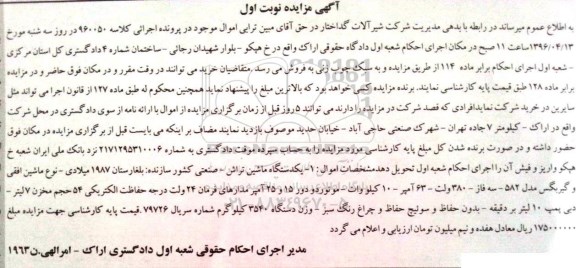 آگهی مزایده نوبت اول
به اطلاع عموم میرساند در رابطه با بدهی مدیریت شرکت شیرآلات گداختار در حق آقای مبین ترابی اموال موجود در پرونده اجرائی کلاسه 960050 در روز سه شنبه مورخ
1396/04/13 ساعت 11 صبح در مکان اجرای احکام شعبه اول دادگاه حقوقی اراک واقع در خ هپکو - بلوار شهیدان رجائی - ساختمان شماره 4 دادگستری کل استان مرکزی
- شعبه اول اجرای احکام برابر ماده 114 از طریق مزایده و به به فروش می رسد. متقاضیان خرید می توانند در وقت مقرر و در مکان فوق حاضر و در مزایده
برابر ماده 128 طبق قیمت پایه کارشناسی نمایند. برنده مزایده کسی خواهد بود که بالاترین مبلغ را پیشنهاد نماید همچنین محکوم له طبق ماده 127 از قانون اجرا می تواند مثل
سایرین در خرید شرکت نماید افرادی که قصد شرکت در مزایده را دارند می توانند 5 روز قبل از زمان برگزاری مزایده از اموال با ارائه نامه از سوی دادگستری در محل شرکت
واقع در اراک - کیلومتر 7 جاده تهران - شهرک صنعتی حاجی آباد - خیابان حدید موصوف بازدید نمایند مضاف بر اینکه می بایست قبل از برگزاری مزایده در مکان فوق
حضور داشته و در صورت برنده شدن کل مبلغ پایه کارشناسی مورد مزایده را به حساب سپرده موقت دادگستری به شماره 2171295310006 نزد بانک ملی ایران شعبه خ
هپکو واریز و فیش آن را اجرای احکام شعبه اول تحویل دهد مشخصات اموال: 1- یکدستگاه ماشین تراش - صنعتی کشور سازنده: بلغارستان 1987 میلادی - نوع ماشین افقی
و گیربگس مدل 582 - سه فاز - 380 ولت - 63 آمپر - 10 کیلووات - نوتوردو دور 15 و 25 آمپر مدارهای فرمان 24 ولت درجه حفاظت الکتریکی 54 حجم مخزن 7 لیتر -
دبی پمپ 10 لیتر بر دقیقه - بدون حفاظ و سوئیچ حفاظ و چراغ رنگ سبز - وزن دستگاه 3540 کیلوگرم شماره سریال 79726 .قیمت پایه کارشناسی جهت مزایده مبلغ
175000000 ریال معادل هفده و نیم میلیون تومان ارزیابی و اعلام می گردد
مدیر اجرای احکام حقوقی شعبه اول دادگستری اراک - امرالهی.ن 1963